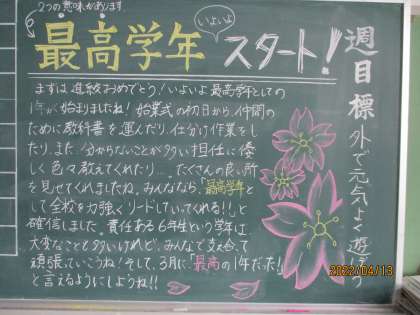 2つの意味があります
いよいよ
最高学年 スタート!
まずは進級おめでとう!いよいよ最高学年としての
1年が始まりましたね!始業式の初日から、仲間の
ために教科書を運んだり、仕分け作業をし
たり、また、分からないことが多い担任に優
しく色々教えてくれたり…、たくさんの良い所
を見せてくれましたね。みんななら、「最高学年と
して全校を力強くリードしていってくれる!!」と
確信しました。責任ある6年生という学年は
大変なことも多いけれど、みんなで支え合って
頑張っていこうね!そして、3月に「最高の1年だった!」
と言えるようにしようね!!
週目標 外で元気よく遊ぼう
2022/04/13